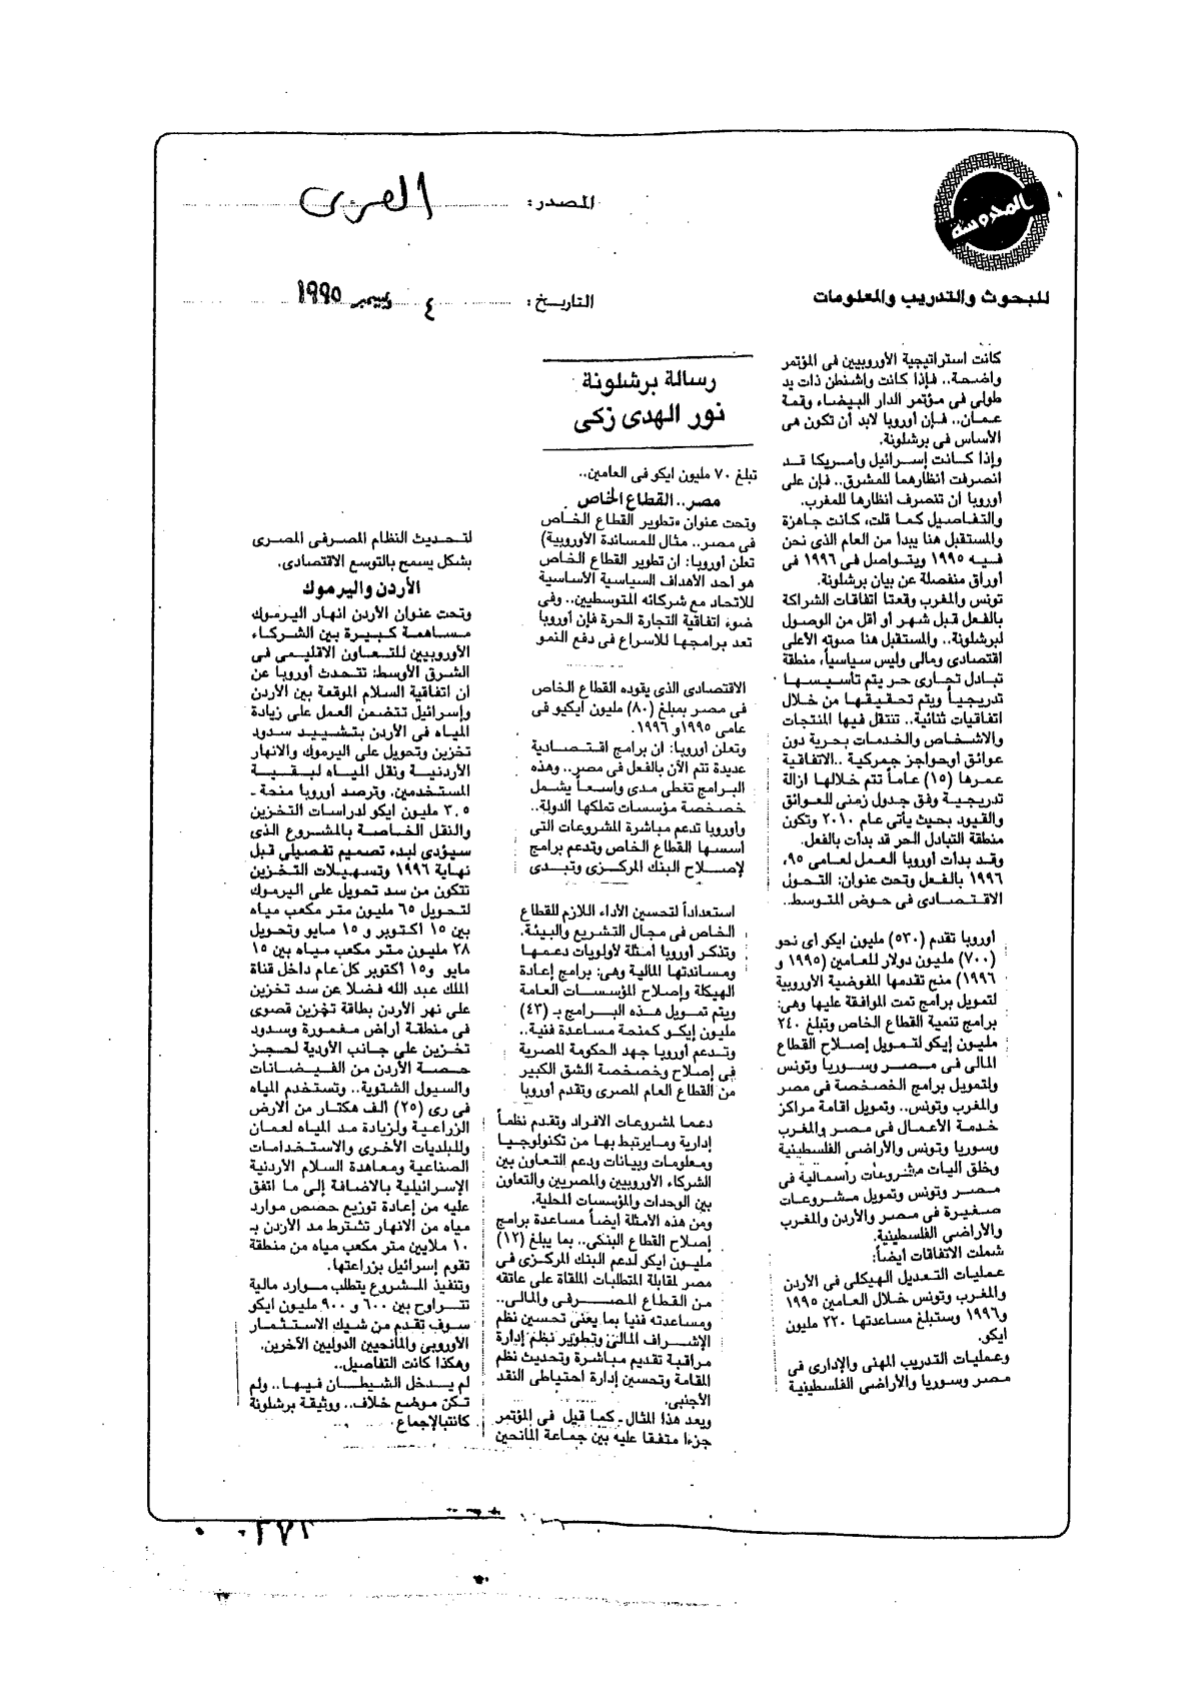 المحروسة
للبحوث والتدريب والمعلومات
المصدر: العربى
التاريخ: ٤ ديسمبر ١٩٩٥
كانت استراتيجية الأوروبيين فى المؤتمر
واضحة.. فإذا كانت واشنطن ذات يد
طولى فى مؤتمر الدار البيضاء وقمة
عمان.. فإن أوروبا لابد أن تكون هى
الأساس فى برشلونة.
وإذا كانت إسرائيل وأمريكا قد
انصرفت انظارهما للمشرق.. فإن على
أوروبا ان تنصرف انظارها للمغرب.
والتفاصيل كما قلت، كانت جاهزة
والمستقبل هنا يبدا من العام الذى نحن
فيه ١٩٩٥ ويتواصل فى ١٩٩٦ فى
أوراق منفصلة عن بيان برشلونة.
تونس والمغرب وقعتا اتفاقات الشراكة
بالفعل قبل شهر أو أقل من الوصول
لبرشلونة.. والمستقبل هنا صوته الأعلى
اقتصادى ومالى وليس سياسياً، منطقة
تبادل تجارى حر يتم تأسيسها
تدريجياً ويتم تحقيقها من خلال
اتفاقيات ثنائية.. تنتقل فيها المنتجات
والاشخاص والخدمات بحرية دون
عوائق اوحواجز جمركية ..الاتفاقية
عمرها (١٥) عاماً تتم خلالها ازالة
تدريجية وفق جدول زمنى للعوائق
والقيود بحيث يأتى عام ٢٠١٠ وتكون
منطقة التبادل الحر قد بدأت بالفعل.
وقد بدأت أوروبا العمل لعامى ٩٥،
١٩٩٦ بالفعل وتحت عنوان: التحول
الاقتصادى فى حوض المتوسط..
أوروبا تقدم (٥٣٠) مليون ايكو اى نحو
(٧٠٠) مليون دولار للعامين (١٩٩٥ و
١٩٩٦) منح تقدمها المفوضية الأوروبية
لتمويل برامج تمت الموافقة عليها وهى:
برامج تنمية القطاع الخاص وتبلغ ٢٤٠
مليون إيكو لتمويل إصلاح القطاع
المالى فى مصر وسوريا وتونس
ولتمويل برامج الخصخصة فى مصر
والمغرب وتونس.. وتمويل اقامة مراكز
خدمة الأعمال فى مصر والمغرب
وسوريا وتونس والأراضى الفلسطينية
وخلق اليات مشروعات رأسمالية فى
مصر وتونس وتمويل مشروعات
صغيرة فى مصر والأردن والمغرب
والأراضى الفلسطينية.
شملت الاتفاقات ايضاً:
عمليات التعديل الهيكلى فى الأردن
والمغرب وتونس خلال العامين ١٩٩٥
و١٩٩٦ وستبلغ مساعدتها ٢٢٠ مليون
ايكو.
وعمليات التدريب المهنى والإدارى فى
مصر وسوريا والأراضى الفلسطينية
رسالة برشلونة
نور الهدى زكى
تبلغ ٧٠ مليون ايكو فى العامين..
مصر.. القطاع الخاص
وتحت عنوان «تطوير القطاع الخاص
فى مصر.. مثال للمساندة الأوروبية)
تعلن أوروبا: ان تطوير القطاع الخاص
هو أحد الأهداف السياسية الأساسية
للاتحاد مع شركائه المتوسطيين.. وفى
ضوء اتفاقية التجارة الحرة فإن أوروبا
تعد برامجها للاسراع فى دفع النمو
الاقتصادى الذى يقوده القطاع الخاص
فى مصر بمبلغ (٨٠) مليون ايكيو فى
عامى ١٩٩٥و ١٩٩٦.
وتعلن أوروبا: ان برامج اقتصادية
عديدة تتم الآن بالفعل فى مصر.. وهذه
البرامج تغطى مدى واسعاً يشمل
خصخصة مؤسسات تملكها الدولة..
وأوروبا تدعم مباشرة المشروعات التى
اسسها القطاع الخاص وتدعم برامج
لإصلاح البنك المركزى وتبدى
استعداداً لتحسين الأداء اللازم للقطاع
الخاص فى مجال التشريع والبيئة.
وتذكر أوروبا امثلة لأولويات دعمها
ومساندتها المالية وهى: برامج إعادة
الهيكلة وإصلاح المؤسسات العامة
ويتم تمويل هذه البرامج بـ (٤٣)
مليون إيكو كمنحة مساعدة فنية..
وتدعم أوروبا جهد الحكومة المصرية
فى إصلاح وخصخصة الشق الكبير
من القطاع العام المصرى وتقدم أوروبا
دعما لمشروعات الافراد وتقدم نظماً
إدارية ومايرتبط بها من تكنولوجيا
ومعلومات وبيانات ودعم التعاون بين
الشركاء الأوروبيين والمصريين والتعاون
بين الوحدات والمؤسسات المحلية.
ومن هذه الأمثلة أيضاً مساعدة برامج
إصلاح القطاع البنكى.. بما يبلغ (١٢)
مليون ايكو لدعم البنك المركزى فى
مصر لمقابلة المتطلبات الملقاة على عاتقه
من القطاع المصرفى والمالى..
ومساعدته فنيا بما يعنى تحسين نظم
الإشراف المالى وتطوير نظم إدارة
مراقبة تقديم مباشرة وتحديث نظم
المقامة وتحسين إدارة احتياطى النقد
الأجنبى.
ويعد هذا المثال ـ كما قيل فى المؤتمر
جزءا متفقا عليه بين جماعة المانحين
لتحديث النظام المصرفى المصرى
بشكل يسمح بالتوسع الاقتصادى.
الأردن واليرموك
وتحت عنوان الأردن انهار اليرموك
مساهمة كبيرة بين الشركاء
الأوروبيين للتعاون الاقليمى فى
الشرق الأوسط: تتحدث أوروبا عن
ان اتفاقية السلام الموقعة بين الأردن
وإسرائيل تتضمن العمل على زيادة
المياه فى الأردن بتشييد سدود
تخزين وتحويل على اليرموك والانهار
الأردنية ونقل المياه لبقية
المستخدمين. وترصد أوروبا منحة ـ
٣.٥ مليون ايكو لدراسات التخزين
والنقل الخاصة بالمشروع الذى
سيؤدى لبدء تصميم تفصيلى قبل
نهاية ١٩٩٦ وتسهيلات التخزين
تتكون من سد تحويل على اليرموك
لتحويل ٦٥ مليون متر مكعب مياه
بين ١٥ اكتوبر و ١٥ مايو وتحويل
٢٨ مليون متر مكعب مياه بين ١٥
مايو و١٥ اكتوبر كل عام داخل قناة
الملك عبد الله فضلا عن سد تخزين
على نهر الأردن بطاقة تخزين قصوى
فى منطقة أراض مغمورة وسدود
تخزين على جانب الأودية لحجز
حصة الأردن من الفيضانات
والسيول الشتوية.. وتستخدم المياه
فى رى (٢٥) الف هكتار من الارض
الزراعية ولزيادة مد المياه لعمان
وللبلديات الأخرى والاستخدامات
الصناعية ومعاهدة السلام الأردنية
الإسرائيلية بالاضافة إلى ما اتفق
عليه من إعادة توزيع حصص موارد
مياه من الانهار تشترط مد الأردن بـ
١٠ ملايين متر مكعب مياه من منطقة
تقوم إسرائيل بزراعتها.
وتنفيذ المشروع يتطلب موارد مالية
تتراوح بين ٦٠٠ و ٩٠٠ مليون ايكو
سوف تقدم من شيك الاستثمار
الأوروبى والمانحين الدوليين الآخرين.
وهكذا كانت التفاصيل..
لم يدخل الشيطان فيها.. ولم
تكن موضع خلاف.. ووثيقة برشلونة
كانتبالإجماع.